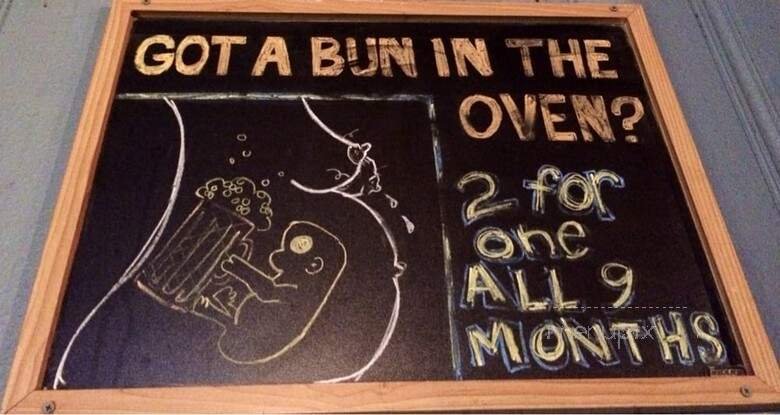 GOT A BUN IN THE
OVEN?
2 for
one
ALL 9
MONTHS